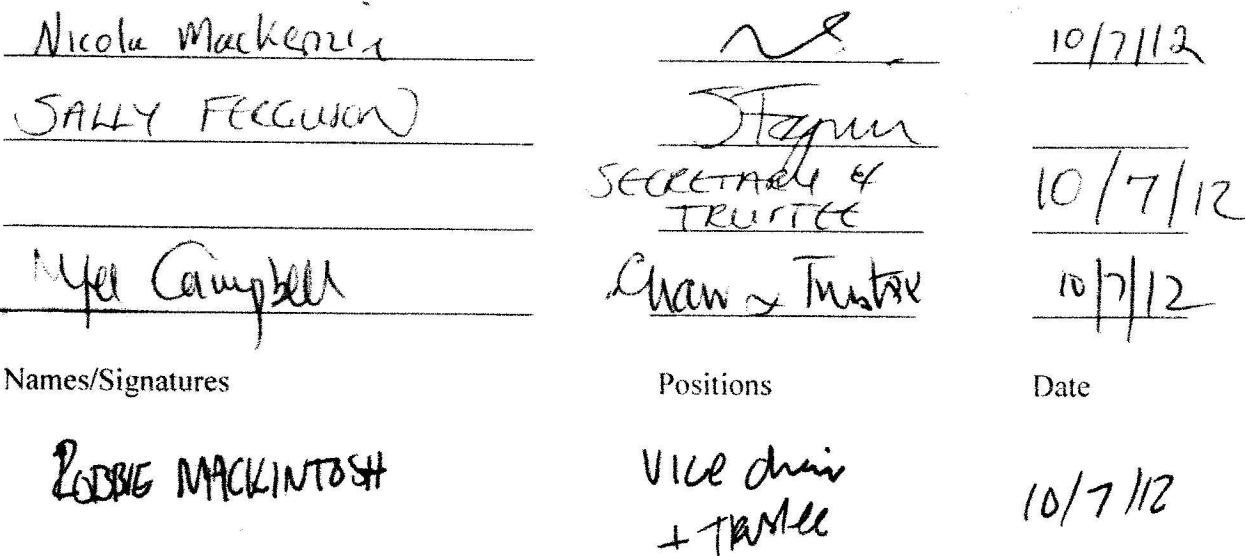 Nicola Mackenzie 10/7/12
SALLY FERGUSON SFergusn
SECRETARY & TRUSTEE 10/7/12
Campbell Chair & Trustee 10/7/12
Names/Signatures Positions Date
ROBBIE MACKINTOSH Vice chair + Trustee 10/7/12